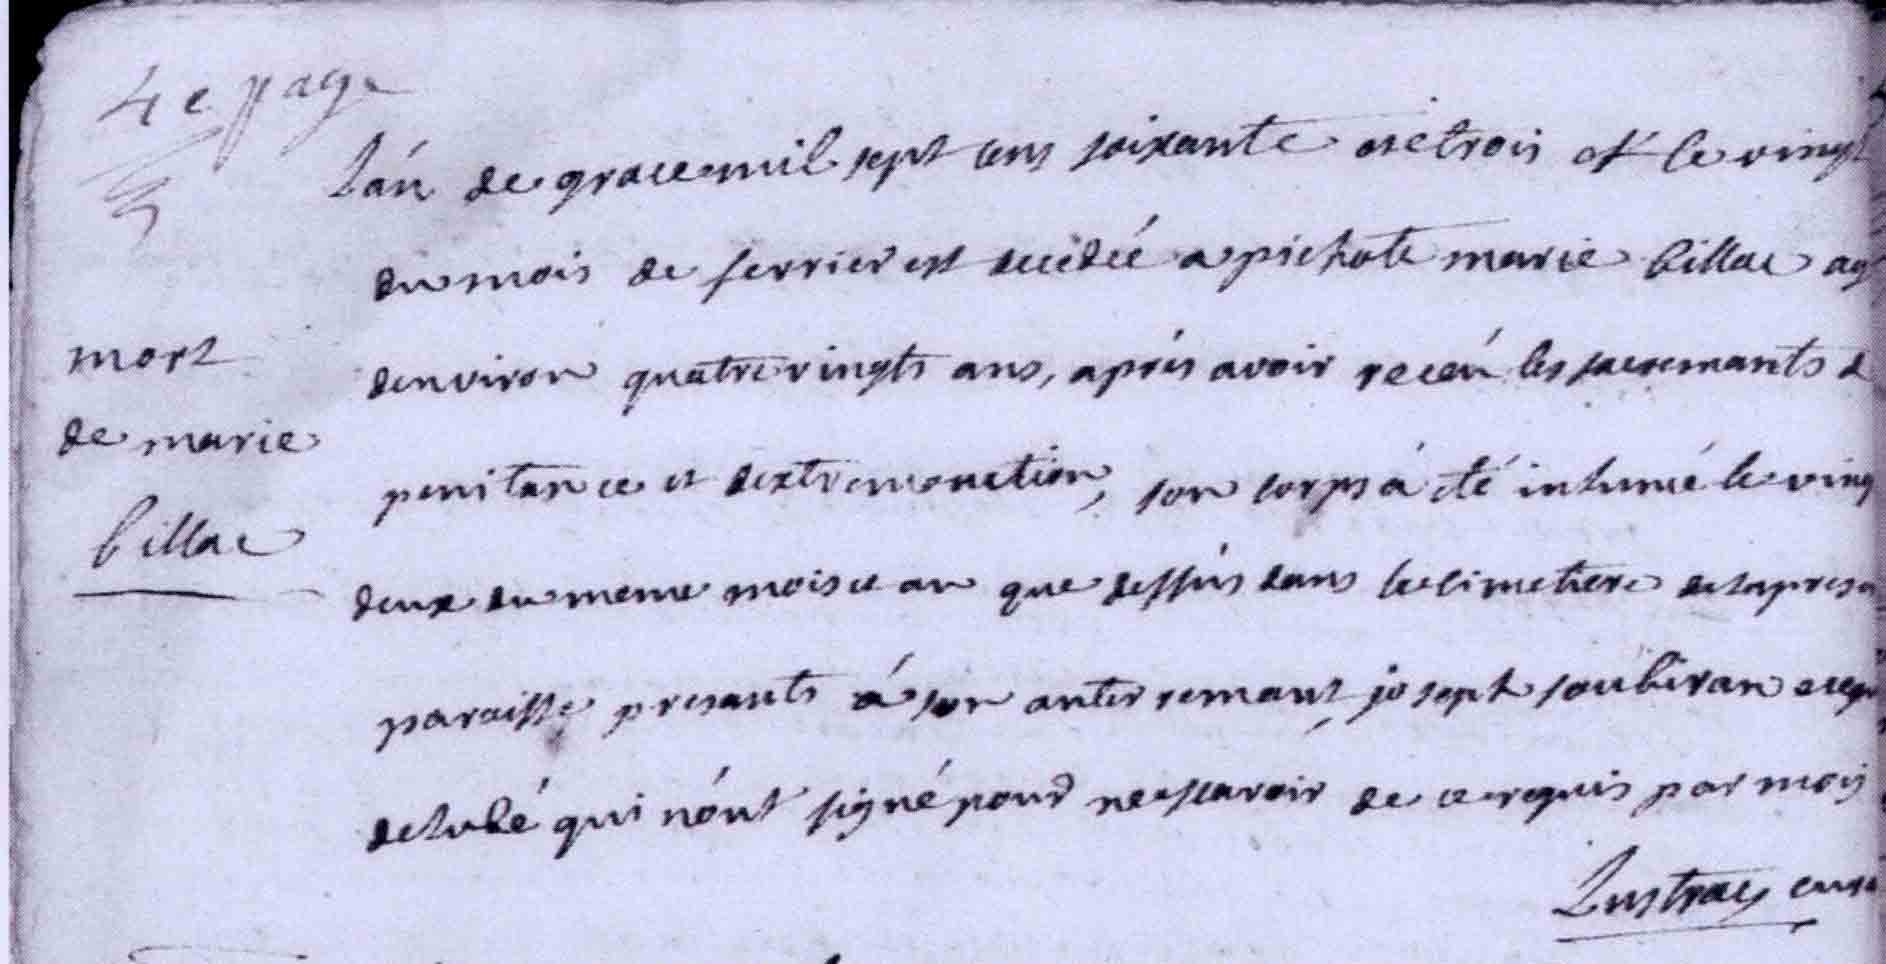 4e page
L'an de grace mil sept cens soixante et trois et le vingt
du mois de ferrier est decedée a pichote marie billac ag
denviron quatre vingts ans, aprés avoir receu les sacremants d
penitance et dextremonction, son corps á eté inhumé le ving
deux du meme mois et an que dessus dans le cimetiere de la presa
paroisse presants á son anterremant joseph soubiran et
qui n'ont signé pour ne scavoir de ce requis par moy
Lustrac curé
mort
de marie
billac